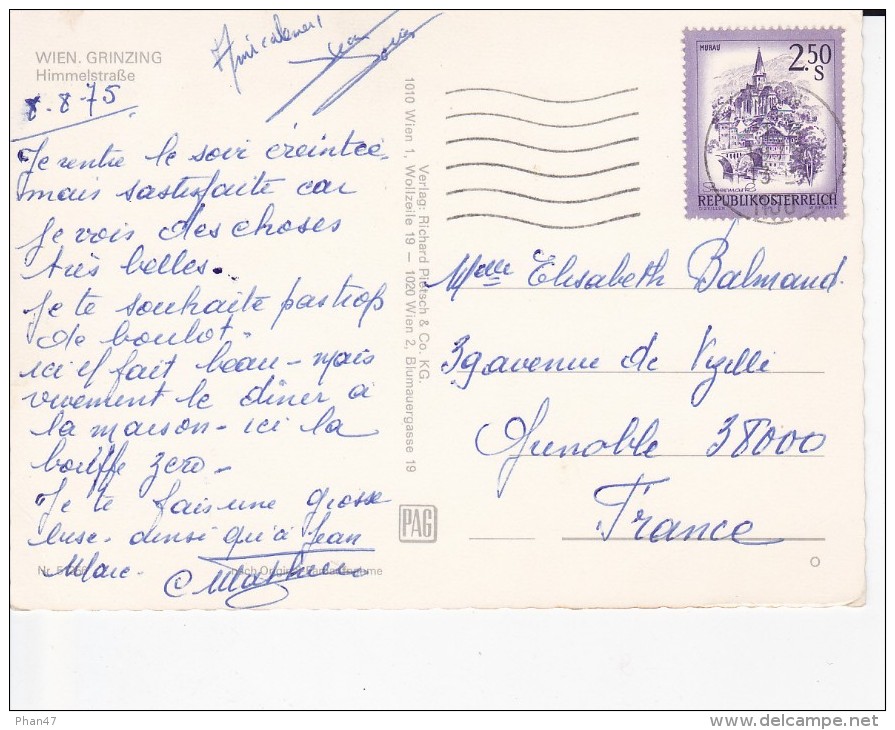 WIEN. GRINZING
Himmelstraße
8-8-75
Amicalement
Je rentre le soir éreintée,
mais sastisfaite car
je vois des choses
très belles..
Je te souhaite pas trop
de boulot.
ici il fait beau - mais
vivement le dîner à
la maison - ici la
bouffe zero -
Je te fais une grosse
bise. ainsi qu'à Jean
Marc.
Nr.
nach Original-Farbaufnahme
Verlag: Richard Pietsch & Co. KG.
1010 Wien 1, Wollzeile 19 – 1020 Wien 2, Blumauergasse 19
PAG
MURAU
2.50
S
Steiermark
REPUBLIK ÖSTERREICH
Melle Elisabeth Balmand.
39 avenue de Vizille
Grenoble 38000
France
Phan47
www.delcampe.net